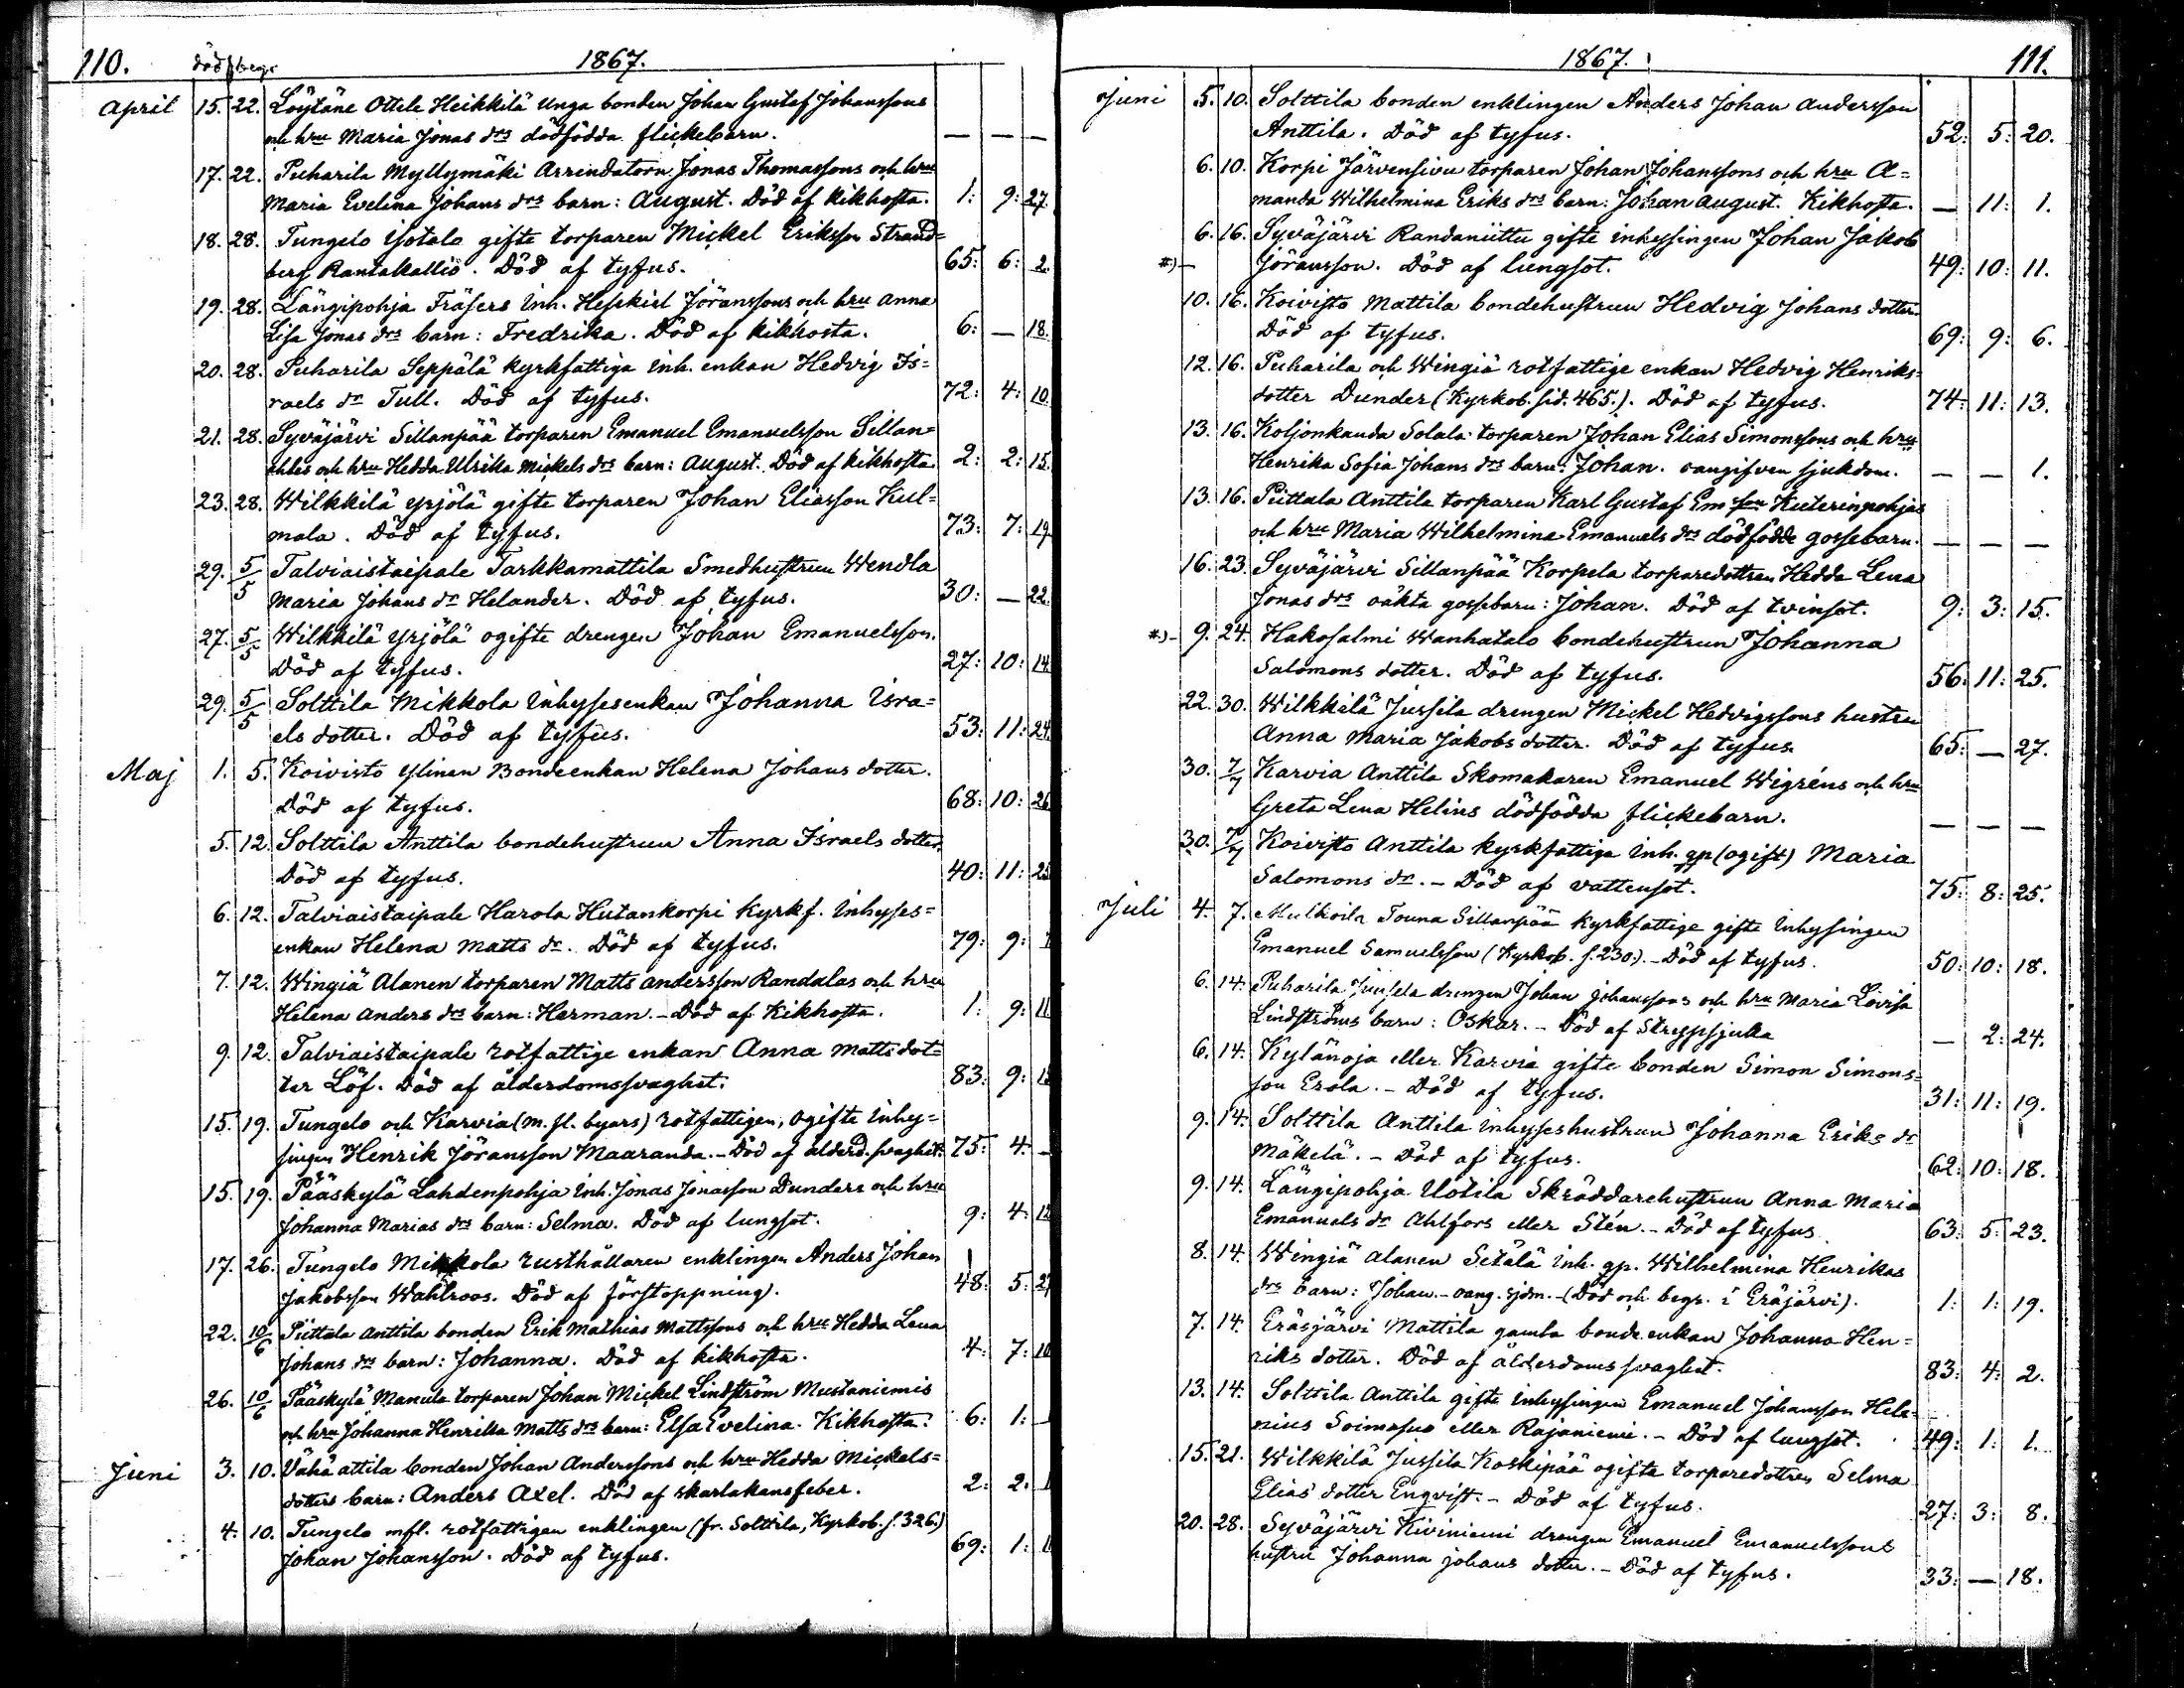 110. död begr 1867.
April 15. 22. Löytäne Ottila Heikkilä unga bonden Johan Gustaf Johanssons
och hru Maria Jonas drs dödfödda flickebarn. — — —
17. 22. Puharila Myllymäki Arrendatorn Jonas Thomassons och hru
Maria Evelina Johans drs barn: August. Död af kikhosta. 1: 9: 27.
18. 28. Tungelo Isotalo gifte torparen Mickel Eriksson Strand=
berg Rantakallio. Död af tyfus. 65: 6: 2.
19. 28. Längipohja Fräsers Inh. Heskiel Jöranssons och hru Anna
Lisa Jonas drs barn: Fredrika. Död af kikhosta. 6: — 18.
20. 28. Puharila Seppälä kyrkfattiga inh. enkan Hedvig Is=
raels dr Tull. Död af tyfus. 72: 4: 10.
21. 28. Syväjärvi Sillanpää torparen Emanuel Emanuelsson Sillan=
och hru Hedda Ulrika Mickels drs barn: August. Död af kikhosta. 2: 2: 15.
23. 28. Wilkkilä Yrjölä gifte torparen Johan Eliasson Kul=
mala. Död af tyfus. 73: 7: 19.
29. 5/5 Talviaistaipale Tarkkamattila Smedhustrun Wendla
Maria Johans dr Helander. Död af tyfus. 30: — 22.
27. 5/5 Wilkkilä Yrjölä ogifte drengen Johan Emanuelsson.
Död af tyfus. 27: 10: 14.
29. 5/5 Solttila Mikkola Inhysesenkan Johanna Isra=
els dotter. Död af tyfus. 53: 11: 24.
Maj 1. 5. Koivisto Ylinen Bondeenkan Helena Johans dotter.
Död af tyfus. 68: 10: 26
5. 12. Solttila Anttila bondehustrun Anna Israels dotter.
Död af tyfus. 40: 11: 25
6. 12. Talviaistaipale Harola Hutankorpi kyrkf. Inhyses=
enkan Helena Matts dr. Död af tyfus. 79: 9:
7. 12. Wingiä Alanen torparen Matts Andersson Randalas och hru
Helena Anders drs barn: Herman. — Död af Kikhosta. 1: 9: 11
9. 12. Talviaistaipale rotfattige enkan Anna Matts dot=
ter Löf. Död af ålderdomssvaghet. 83: 9:
15. 19. Tungelo och Karvia (m. fl. byars) rotfattigen, ogifte Inhy=
singen Henrik Jöransson Maaranda. — Död af ålderd. svaghet. 75: 4: —
15. 19. Pääskylä Lahdenpohja Inh. Jonas Jonasson Dunders och hru
Johanna Marias drs barn: Selma. Död af lungsot. 9: 4: 12
17. 26. Tungelo Mikkola rusthållaren enklingen Anders Johan
Jakobsson Wahlroos. Död af förstoppning). 48: 5: 27
22. 10/6 Piittala Anttila bonden Erik Mathias Mattssons och hru Hedda Lena
Johans drs barn: Johanna. Död af kikhosta. 4: 7: 10
26. 10/6 Pääskylä Manula torparen Johan Mickel Lindström Mustaniemis
och hru Johanna Henrika Matts drs barn: Elsa Evelina. Kikhosta. 6: 1:
Juni 3. 10. Vähä attila bonden Johan Anderssons och hru Hedda Mickels=
dotters barn: Anders Axel. Död af skarlakansfeber. 2: 2.
4. 10. Tungelo mfl. rotfattigan enklingen (fr. Solttila, Kyrkob. s. 326.)
Johan Johansson. Död af tyfus. 69: 1:
1867. 111.
Juni 5. 10. Solttila bonden enklingen Anders Johan Andersson
Anttila. Död af tyfus. 52: 5: 20.
6. 10. Korpi Järvensivu torparen Johan Johanssons och hru A=
manda Wilhelmina Eriks drs barn: Johan August. Kikhosta. — 11: 1.
6. 16. Syväjärvi Randaniittu gifte inhysingen Johan Jakob
*)— Jöransson. Död af lungsot. 49: 10: 11.
10. 16. Koivisto Mattila bondehustrun Hedvig Johans dotter.
Död af tyfus. 69: 9: 6.
12. 16. Puharila och Wingiä rotfattige enkan Hedvig Henriks=
dotter Dunder (Kyrkob. sid. 465.). Död af tyfus. 74: 11: 13.
13. 16. Koljonkanda Solala torparen Johan Elias Simonssons och hrus
Henrika Sofia Johans drs barn: Johan. oangifven sjukdom. — — 1.
13. 16. Piittala Anttila torparen Karl Gustaf Em son Kuterinpohjas
och hru Maria Wilhelmina Emanuels drs dödfödde gossebarn. — — —
16. 23. Syväjärvi Sillanpää Korpela torparedottren Hedda Lena
Jonas drs oäkta gossebarn: Johan. Död af tvinsot. 9: 3: 15.
*)— 9. 24. Hakosalmi Wanhatalo bondehustrun Johanna
Salomons dotter. Död af tyfus. 56: 11: 25.
22. 30. Wilkkilä Jussila drengen Mickel Hedvigssons hustru
Anna Maria Jakobs dotter. Död af tyfus. 65: — 27.
30. 7/7 Karvia Anttila Skomakaren Emanuel Wigréns och hru
Greta Lena Helins dödfödda flickebarn. — — —
30. 7/7 Koivisto Anttila kyrkfattiga Inh. qp (ogift) Maria
Salomons dr. — Död af vattensot. 75: 8: 25.
Juli 4. 7. Mulkoila Touna Sillanpää kyrkfattige gifte Inhysingen
Emanuel Samuelsson (Kyrkob. s. 230.). — Död af tyfus. 50: 10: 18.
6. 14. Puharila Jussila drengen Johan Johanssons och hru Maria Lovisa
Lindströms barn: Oskar. — Död af Strypsjuka — 2: 24.
6. 14. Kylänoja eller Karvia gifte bonden Simon Simons=
son Erola. — Död af tyfus. 31: 11: 19.
9. 14. Solttila Anttila inhyseshustrun Johanna Eriks dr
Mäkelä. — Död af tyfus. 62: 10: 18.
9. 14. Längipohja Uotila Skräddarehustrun Anna Maria
Emanuels dr Ahlfors eller Stén. — Död af tyfus. 63: 5: 23.
8. 14. Wingiä Alanen Setälä Inh. qp. Wilhelmina Henrikas
drs barn: Johan. — oang. sjdm. — (Död och begr. i Eräjärvi). 1: 1: 19.
7. 14. Eräsjärvi Mattila gamla bonde enkan Johanna Hen=
riks dotter. Död af ålderdomssvaghet. 83: 4: 2.
13. 14. Solttila Anttila gifte Inhysingen Emanuel Johansson Hele=
nius Soimasuo eller Rajaniemi. — Död af lungsot. 49: 1: 1.
15. 21. Wilkkilä Jussila Koskipää ogifta torparedottren Selma
Elias dotter Enqvist. — Död af tyfus. 27: 3: 8.
20. 28. Syväjärvi Kiviniemi drengen Emanuel Emanuelssons
hustru Johanna Johans dotter. — Död af tyfus. 33: — 18.